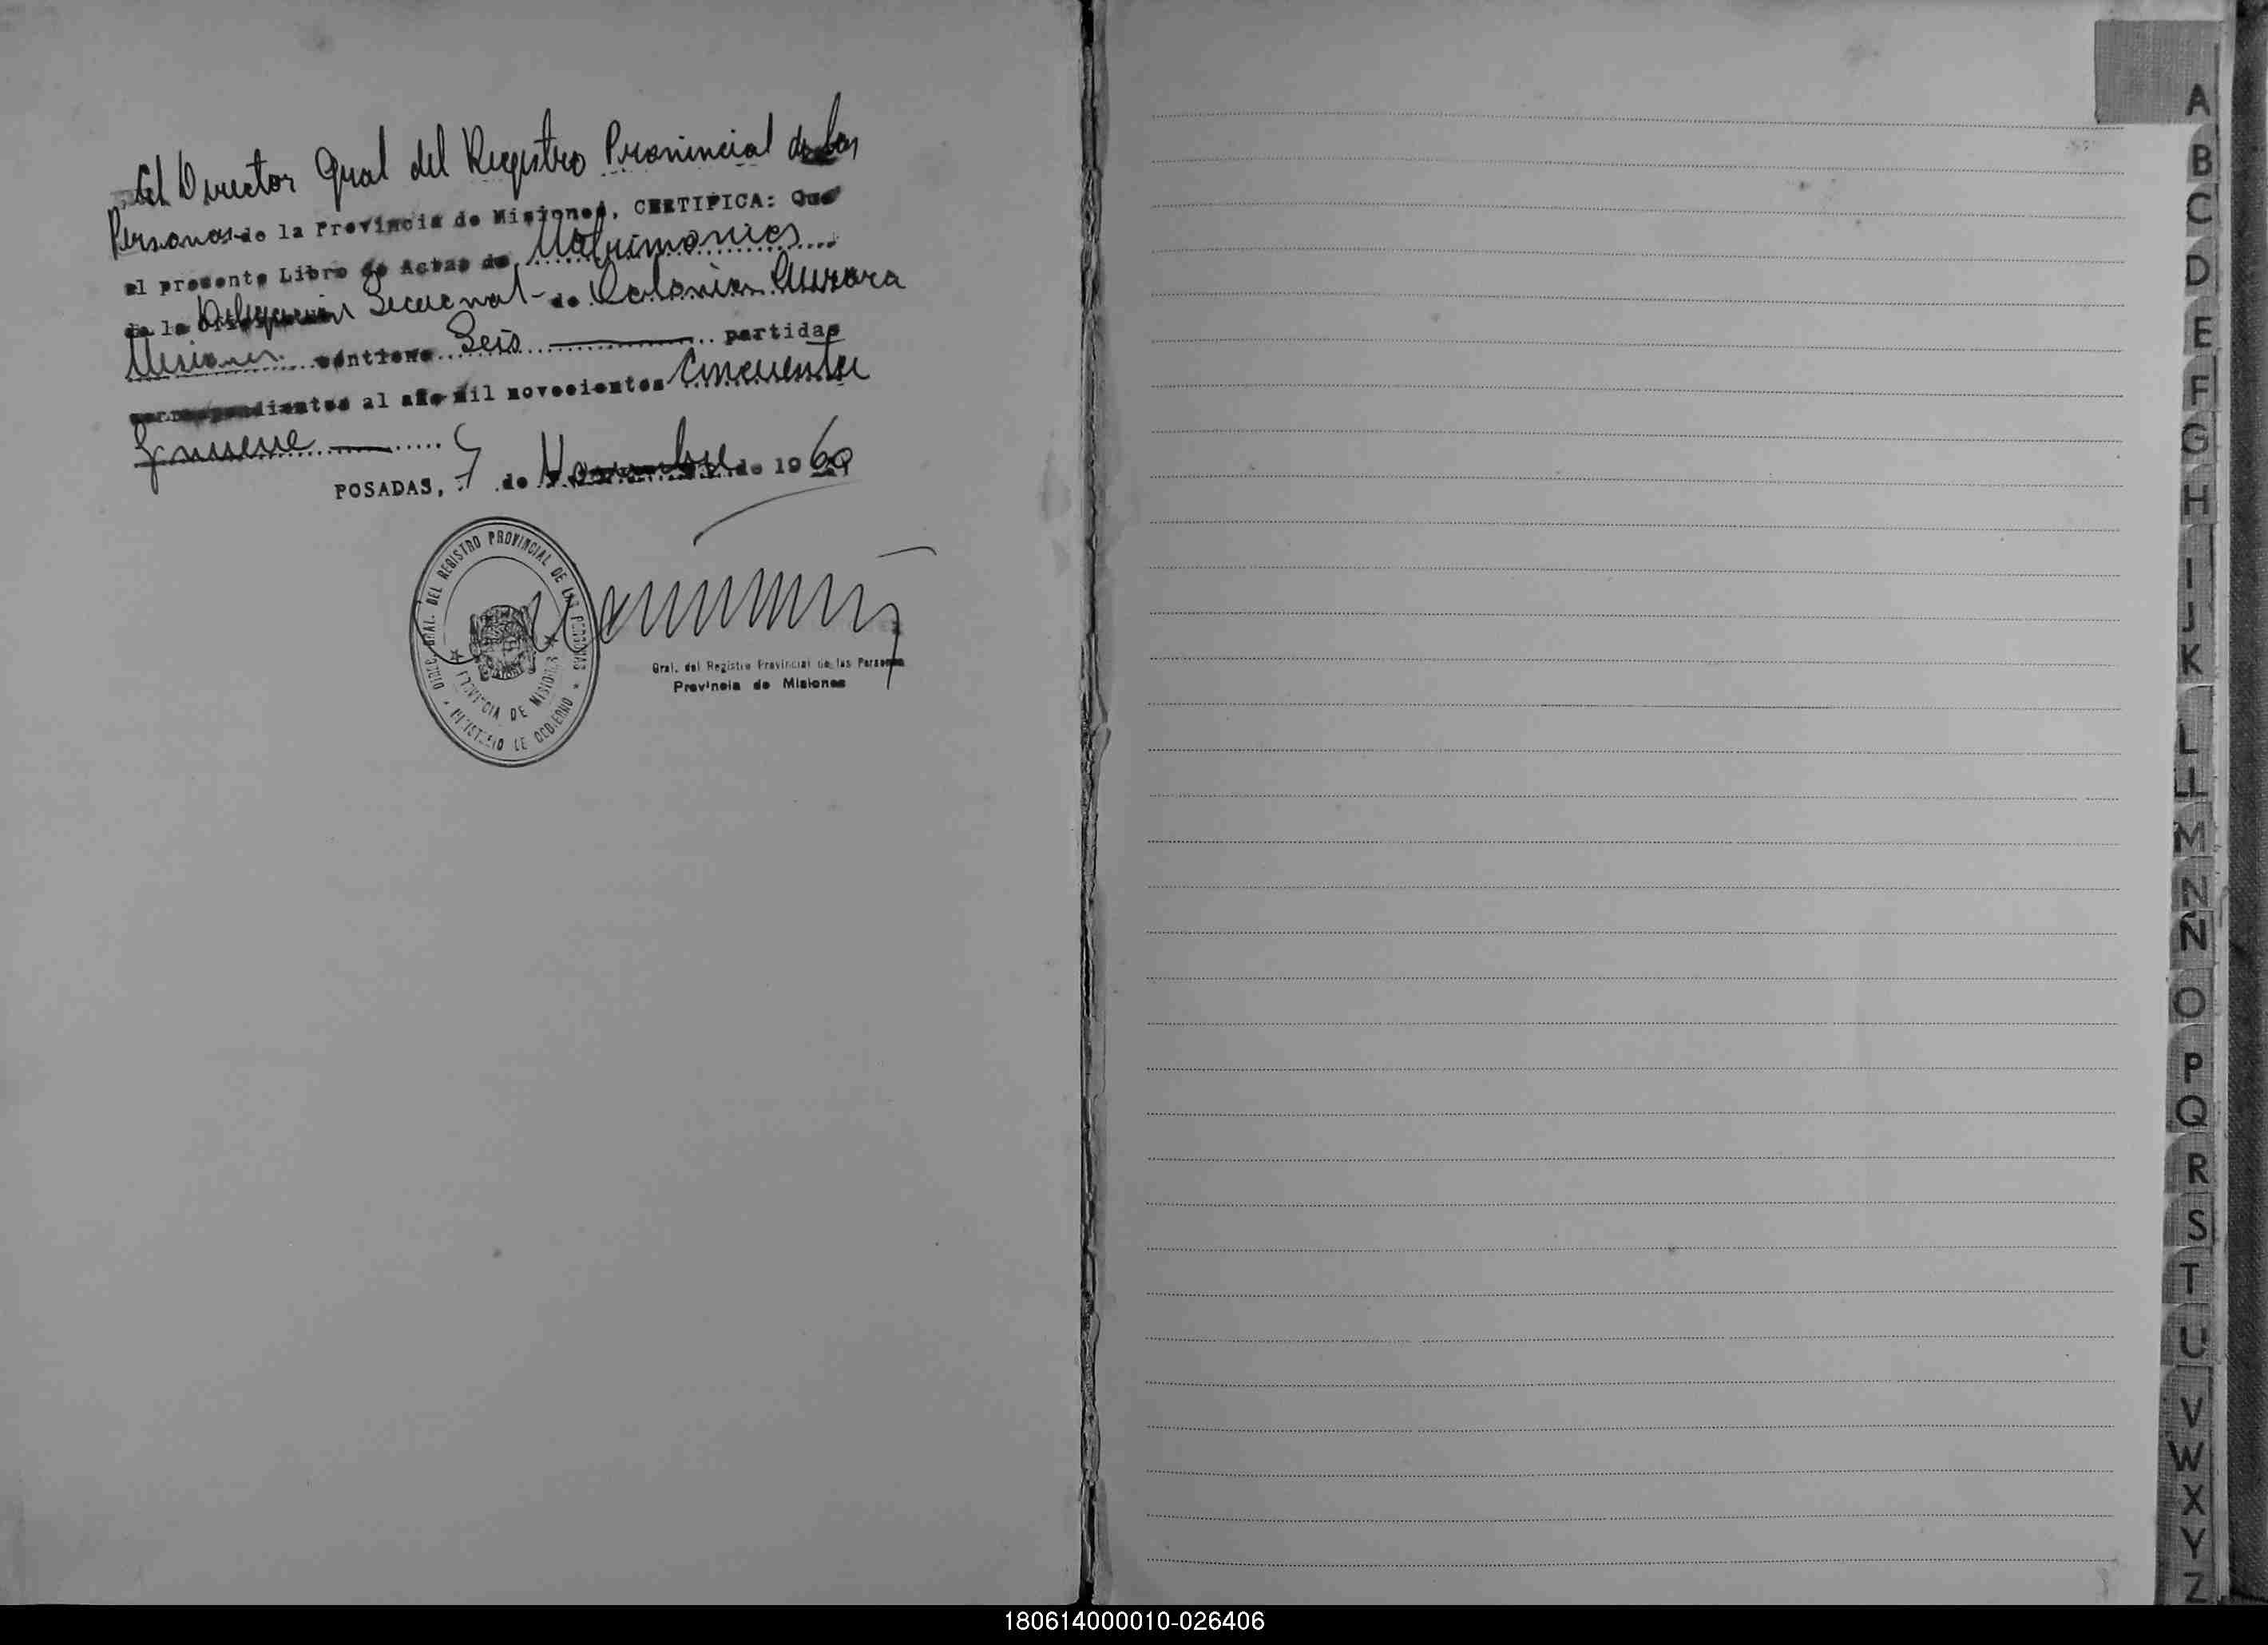 El Director Gral del Registro Provincial de las
Personas de la Provincia de Misiones, CERTIFICA: Que
el presente Libro de Actas de Matrimonios
de la Delegación Seccional de Colonia Aurora
Misiones contiene Seis partidas
correspondientes al año mil novecientos Cincuenta
y nueve
POSADAS, 7 de Noviembre de 1960
DIREC. GRAL. DEL REGISTRO PROVINCIAL DE LAS PERSONAS
PROVINCIA DE MISIONES
MINISTERIO DE GOBIERNO
Gral. del Registro Provincial de las Personas
Provincia de Misiones
A
B
C
D
E
F
G
H
I
J
K
L
LL
M
N
Ñ
O
P
Q
R
S
T
U
V
W
X
Y
Z
180614000010-026406